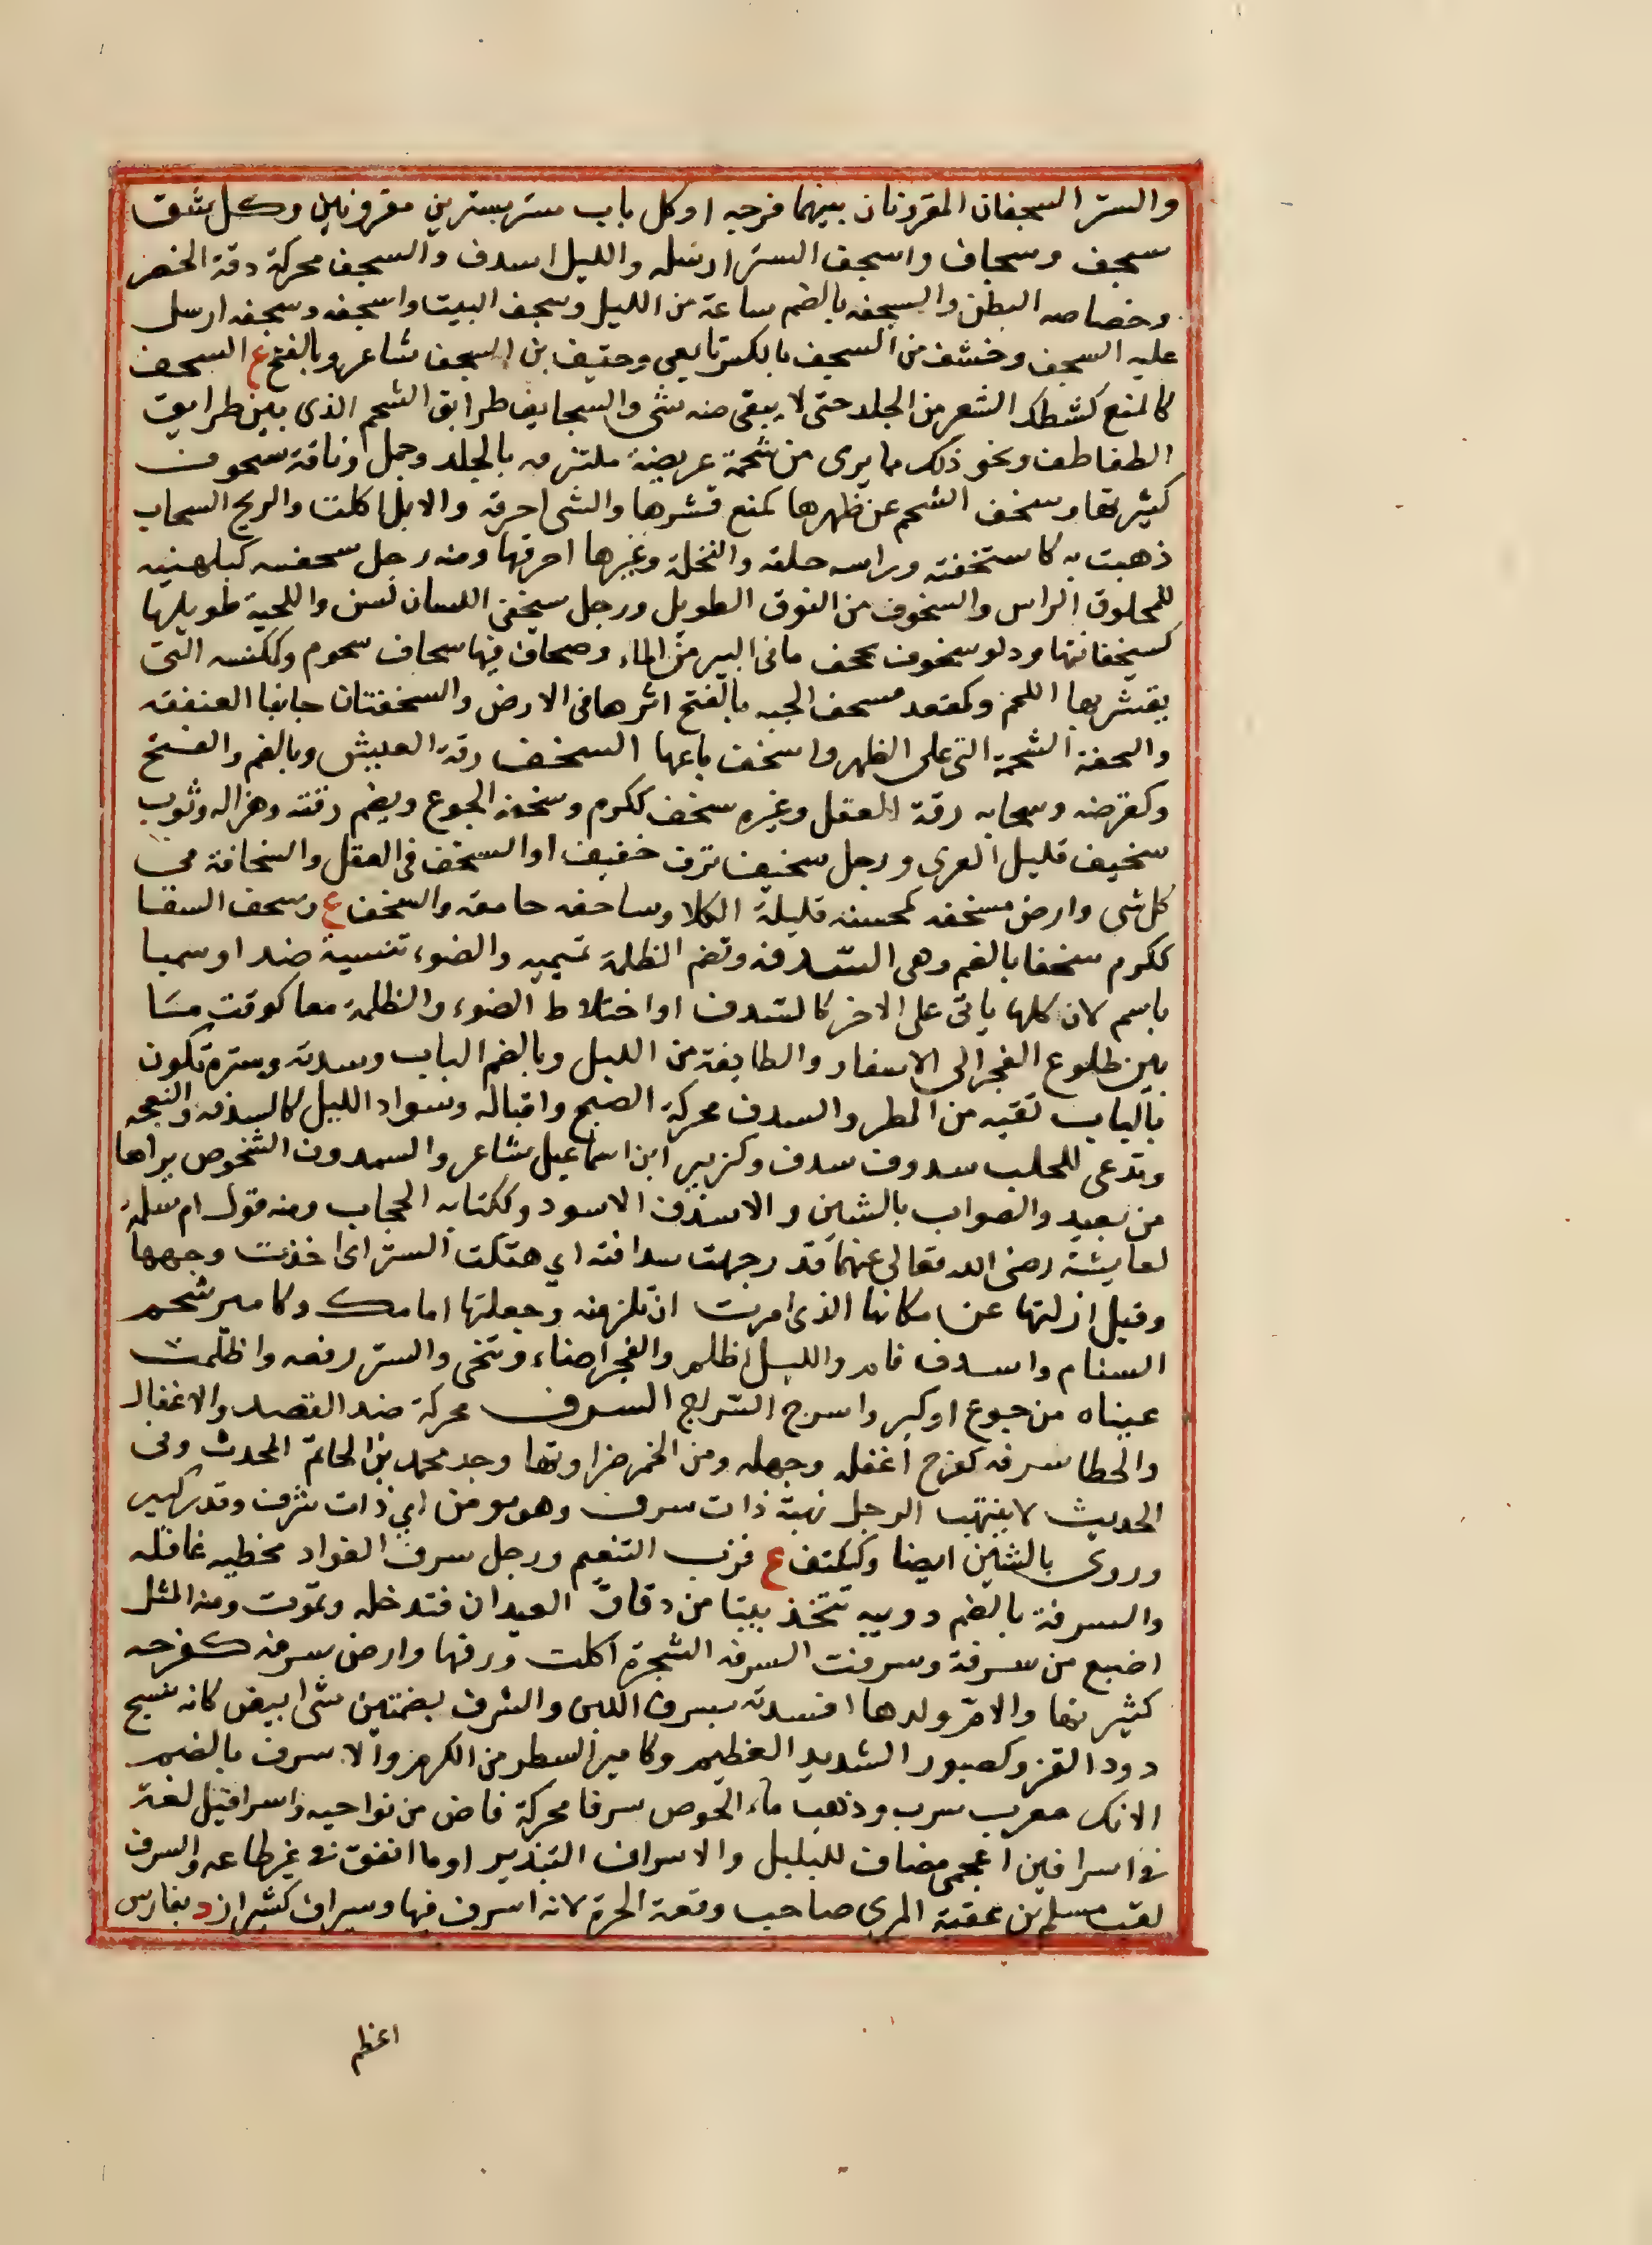 والستر السجفان المقرونان بينهما فرجه او كل باب ستر بسترين مقرونين وكل شق
سجف وسجاف واسجف الستر ارسله والليل اسدف والسجف محركة دقة الخصر
وخصاصه البطن والسجفه بالضم ساعة من الليل وسجف البيت واسجفه وسجفه ارسل
عليه السجف وخشف من السجيف بالكسر تابعى وحتيف بن السجف شاعر وبالفتح ع السحف
كالمنع كشطك الشعر من الجلد حتى لا يبقى منه شى والسحايف طرايق الشحم الذى بين طرايق
الطفاطف ونحو ذلك مما يرى من شحمة عريضة ملتزمه بالجلد وجمل وناقة سحوف
كثيرتها وسخف الشحم عن ظهرها كمنع قشرها والشى احرقه والابل اكلت والريح السحاب
ذهبت به كاستخفته وراسه حلقه والنخلة وغيرها احرقها ومنه رجل سحفنيه كبلهنيه
للمحلوق الراس والسخوف من النوق الطويل ورجل سيخفى اللسان لسن واللحية طويلها
كسيخفانتها ودلو سخوف يجحف مافى البير من الماء وصحاف فيها سحاف سحوم وككنسه التى
يقشر بها اللحم وكمقعد مسحف الحيه بالفتح اثرها فى الارض والسخفتان جانبا العنفقه
والسحفة الشحمة التى على الظهر واسخف باعها السخف رقة العيش وبالضم والفتح
وكقرضه وسحابه رقة العقل وغيره سخف ككرم وسخفة الجوع ويضم رقته وهزاله وثوب
سخيف قليل الغرى ورجل سخيف نزف خفيف او السخف فى العقل والسخافة فى
كل شى وارض مسخفه كمحسنه قليلة الكلا وساخفه حامقه والسخف ع وسخف السقا
ككرم سخفا بالضم وهى السدفه وتضم الظلمة تميميه والضوء تنسية ضد او سميا
باسم لان كلها ياتى على الاخر كالسدف او اختلاط الضوء والظلمة معا كوقت مسَا
بين طلوع الفجر الى الاسفار والطايفة من الليل وبالضم الباب وسدته وسترة تكون
بالباب تقيه من المطر والسدف محركة الصبح واقباله وسواد الليل كالسدفه والنعجه
وتدعى للحلب سدوف سدف وكزبير ابن اسماعيل شاعر والسدوف الشخوص يراها
من بعيد والصواب بالشين والاسدف الاسود وككتابه الحجاب ومنه قول ام سلمة
لعايشة رضى الله تعالى عنهما قد وجهت سدافته اى هتكت الستر اى اخذت وجهها
وقيل ازلتها عن مكانها الذى امرت ان تلزمنه وجعلتها امامك وكامير شحم
السنام واسدف نام والليل اظلم والفجر اضاء وتنحى والستر رفعه واظلمت
عيناه من جوع او كبر واسرج السراج السرف محركة ضد القصد والاغفال
والخطا سرفه كفرح اغفله وجهله ومن الخمر ضراوتها وجد محمد بن الحاتم المحدث وفى
الحديث لا ينتهب الرجل نهبة ذات سرف وهو مومن اى ذات شرف وقدر كبير
وروى بالشين ايضا وككتف ع قرب التنعيم ورجل سرف الفواد مخطيه غافله
والسرفة بالضم دويبه تتخذ بيتا من دقاق العيدان فتدخله وتموت ومنه المثل
اصنع من سرفة وسرفت السرفه الشجرة اكلت ورقها وارض سرفه كفرحه
كثيرتها والامّ ولدها افسدته بسرف اللبن والسرف بضمتين شى ابيض كانه نسج
دود القز وكصبور الشديد العظيم وكامير السطر من الكرم والاسرف بالضم
الانك معرب سرب وذهب ماء الحوض سرفا محركة فاض من نواحيه واسرافيل لغة
فى اسرافين اعجمى مضاف للبلبل والاسراف التبذير او ما انفق فى غير طاعه والسرف
لقب مسلم بن عقبة المرى صاحب وقعة الحرة لانه اسرف فيها وسيراف كشيراز د بفارس
اعظم